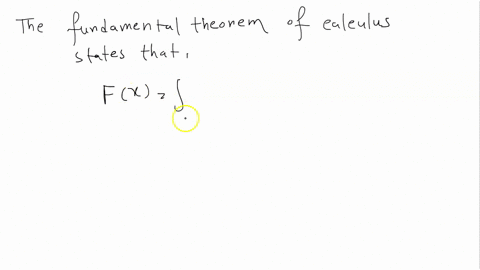 The fundamental theorem of calculus
states that,
F(x) = ∫